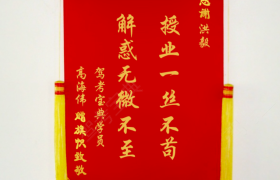 感谢 洪毅
授业一丝不苟
解惑无微不至
驾考宝典学员
高海伟 赠旗帜致敬